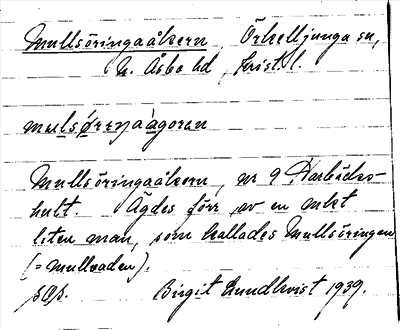 Mullsöringaåkern, Örkelljunga sn,
N. Åsbo hd, Krist. l.
mulsøʀɩŋaågoran
Mullsöringaåkern, nr 9 Harbäcks-
hult. Ägdes förr av en mkt
liten man, som kallades Mullsöringen
(= mullvaden).
Birgit Lundkvist 1939.